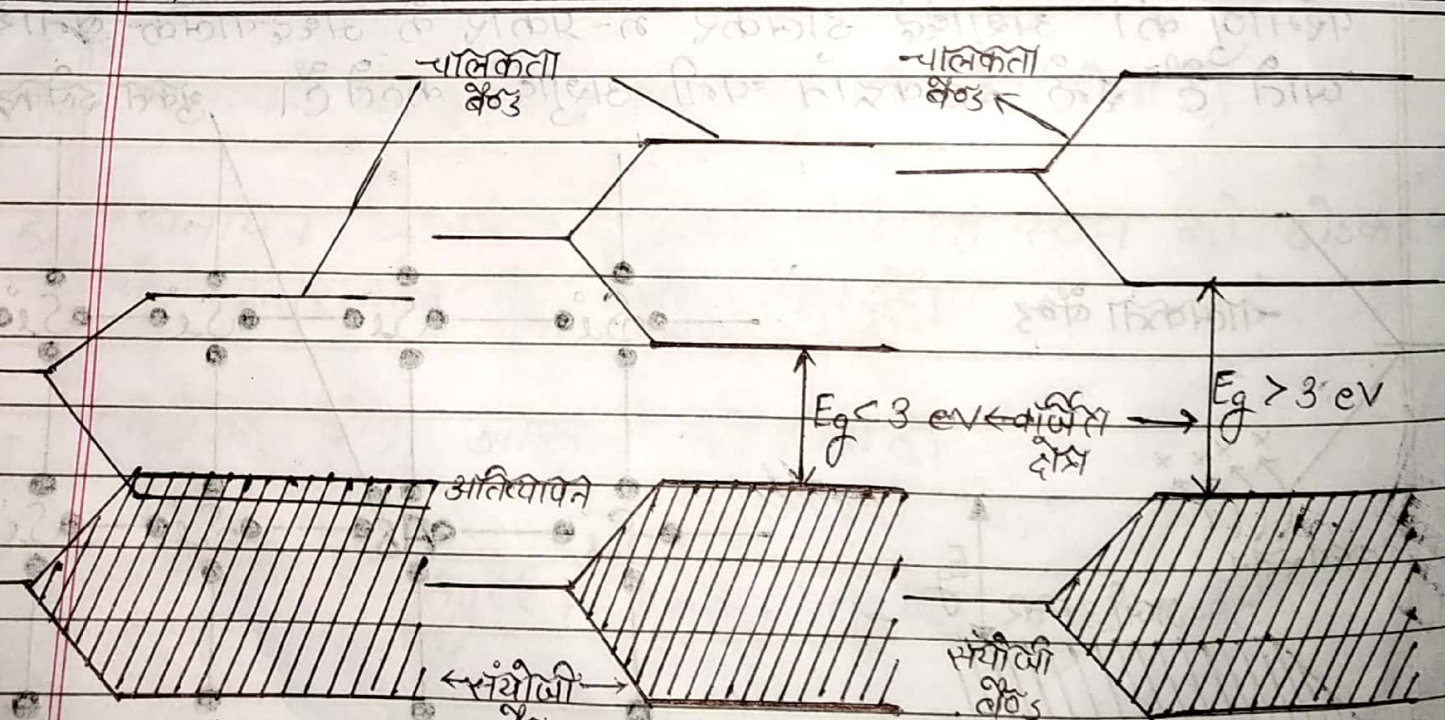 चालकता
बैण्ड
चालकता
बैण्ड
Eg < 3 eV
वर्जित
क्षेत्र
Eg > 3 eV
अतिव्यापन
संयोजी
संयोजी
बैण्ड